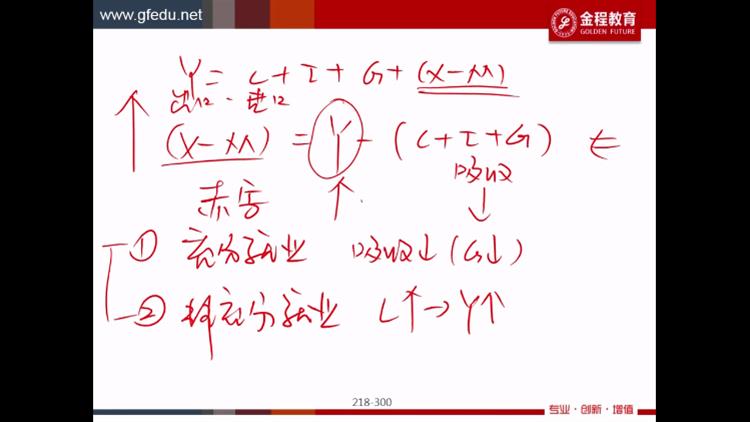 www.gfedu.net
金程教育
GOLDEN FUTURE
Y = C + I + G + (X-M)
出口 - 进口
(X-M) = Y - (C+I+G) ⇐
吸收
赤字
① 充分就业 吸收↓ (G↓)
② 非充分就业 L↑→Y↑
218-300
专业·创新·增值